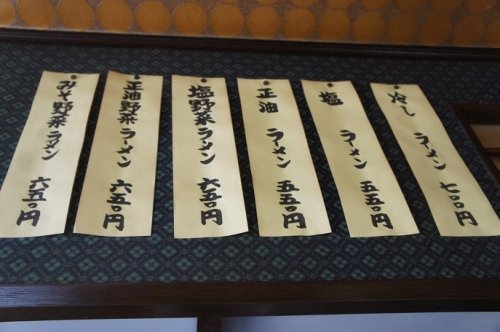 冷し ラーメン 七〇〇円
塩 ラーメン 五五〇円
正油 ラーメン 五五〇円
塩野菜ラーメン 六五〇円
正油野菜ラーメン 六五〇円
みそ野菜ラーメン 六五〇円